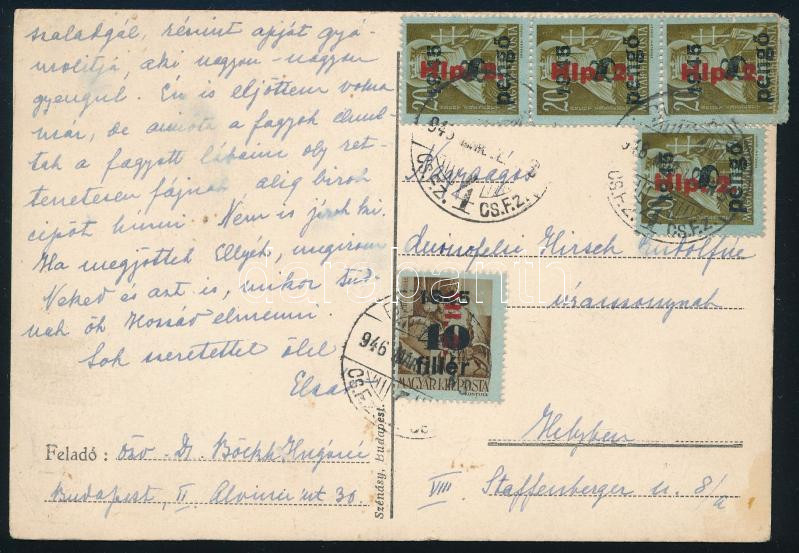 szaladgál, részint apját gyá-
molítja, aki nagyon-nagyon
gyengül. Én is eljöttem volna
már, de amióta a fagyok elmul-
tak a fagyott lábaim oly ret-
tenetesen fájnak alig birok
cipőt húzni. Nem is járok ki.
Ha megjöttek Ellyék, megirom
Neked és azt is, mikor tud-
nak ők Hozzád elmenni.
Sok szeretettel ölel
Elsa
Feladó : özv. Dr. Böckh Hugóné
Budapest, II. Alvinci út 30.
Szénásy, Budapest.
1945
Klp. 2.
pengő
20
1945
Klp. 2.
pengő
20
1945
Klp. 2.
pengő
20
1945
Klp. 2.
pengő
20
946 MÁR.
CS.F.Z. 4 CS.F.Z.
946
CS.F.Z. CS.F.Z.
1945
10
fillér
MAGYAR KIR. POSTA
946 MÁR.
CS.F.Z.
Hirsch Rudolfné
úrasszonynak
Helyben
VIII. Staffenberger u. 8/a
darabanth